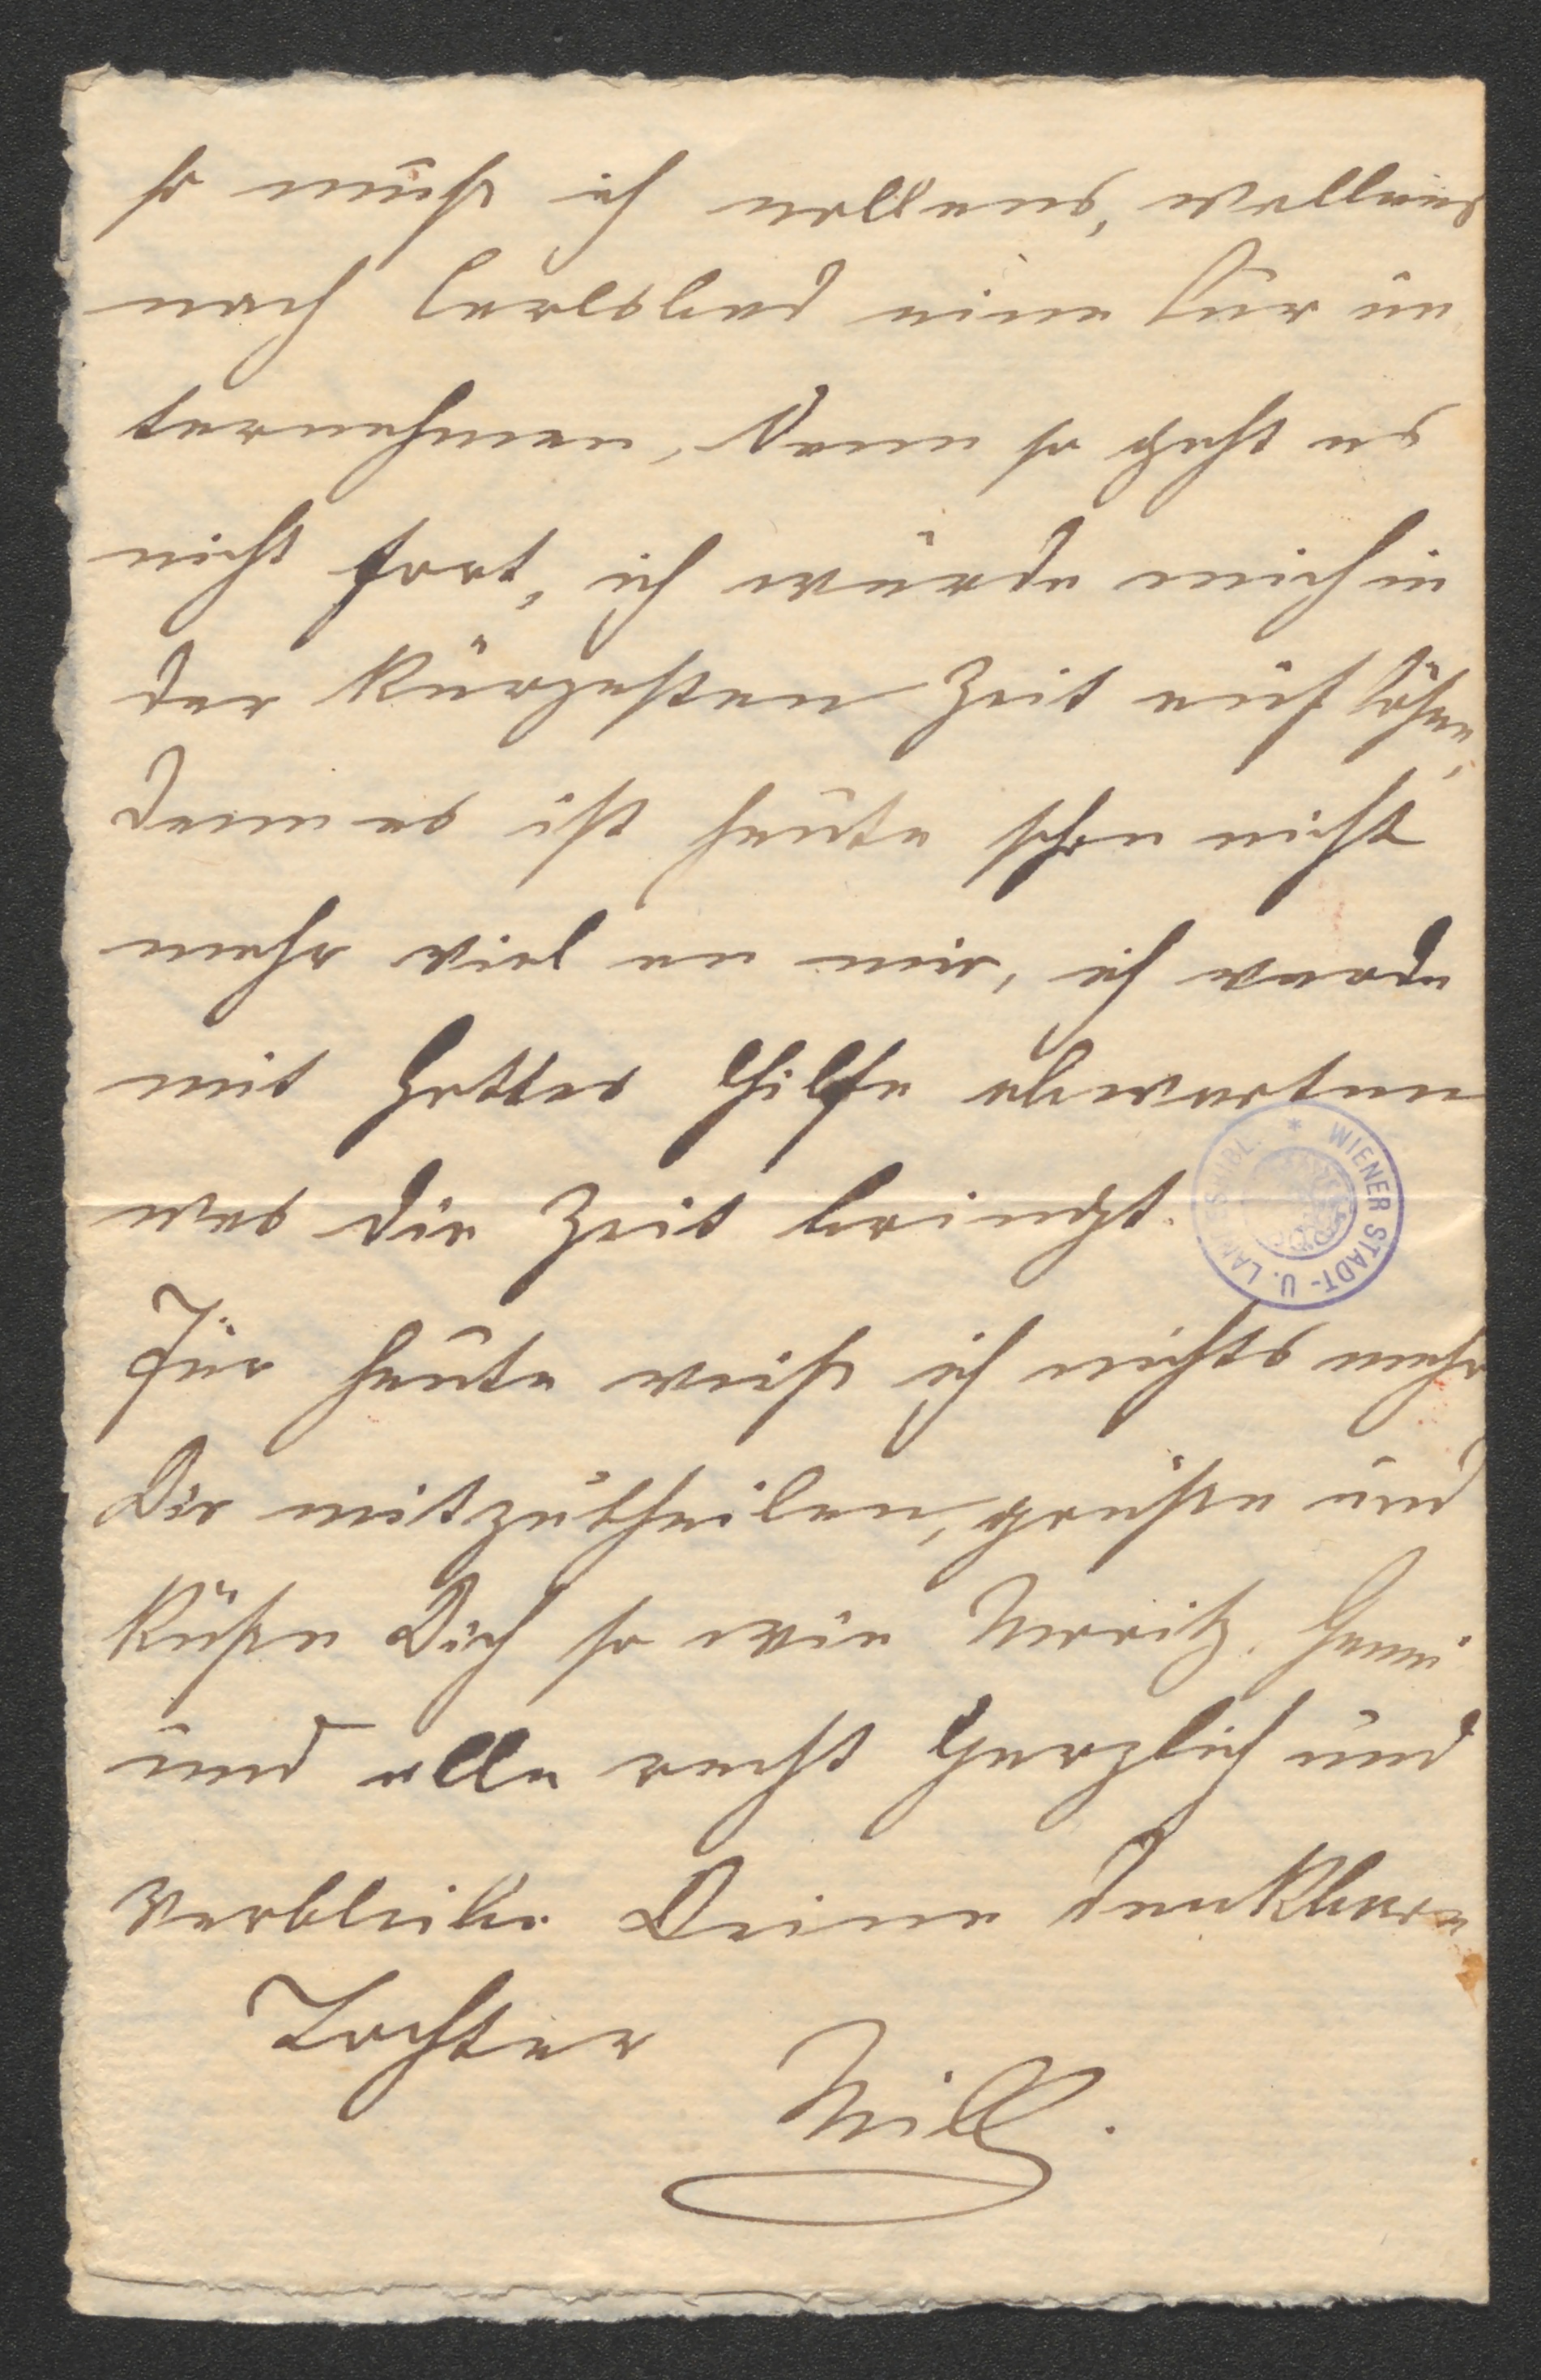 so muß ich nollens, wollens
nach Carlsbad eine Cur un
ternehmen, Denn so geht es
nicht fort, ich würde mich in
der kürzesten Zeit auflösen,
denn es ist heute schon nicht
mehr viel an mir, ich werde
mit Gottes Hilfe abwarten
was die Zeit bringt.
Für heute weiß ich nichts mehr
Dir mitzutheilen, grüße und
küße Dich so wie Moritz.
und alle recht Herzlich und
verbleibe Deine dankbare
Tochter
WIENER STADT- U. LANDESBIBL. *